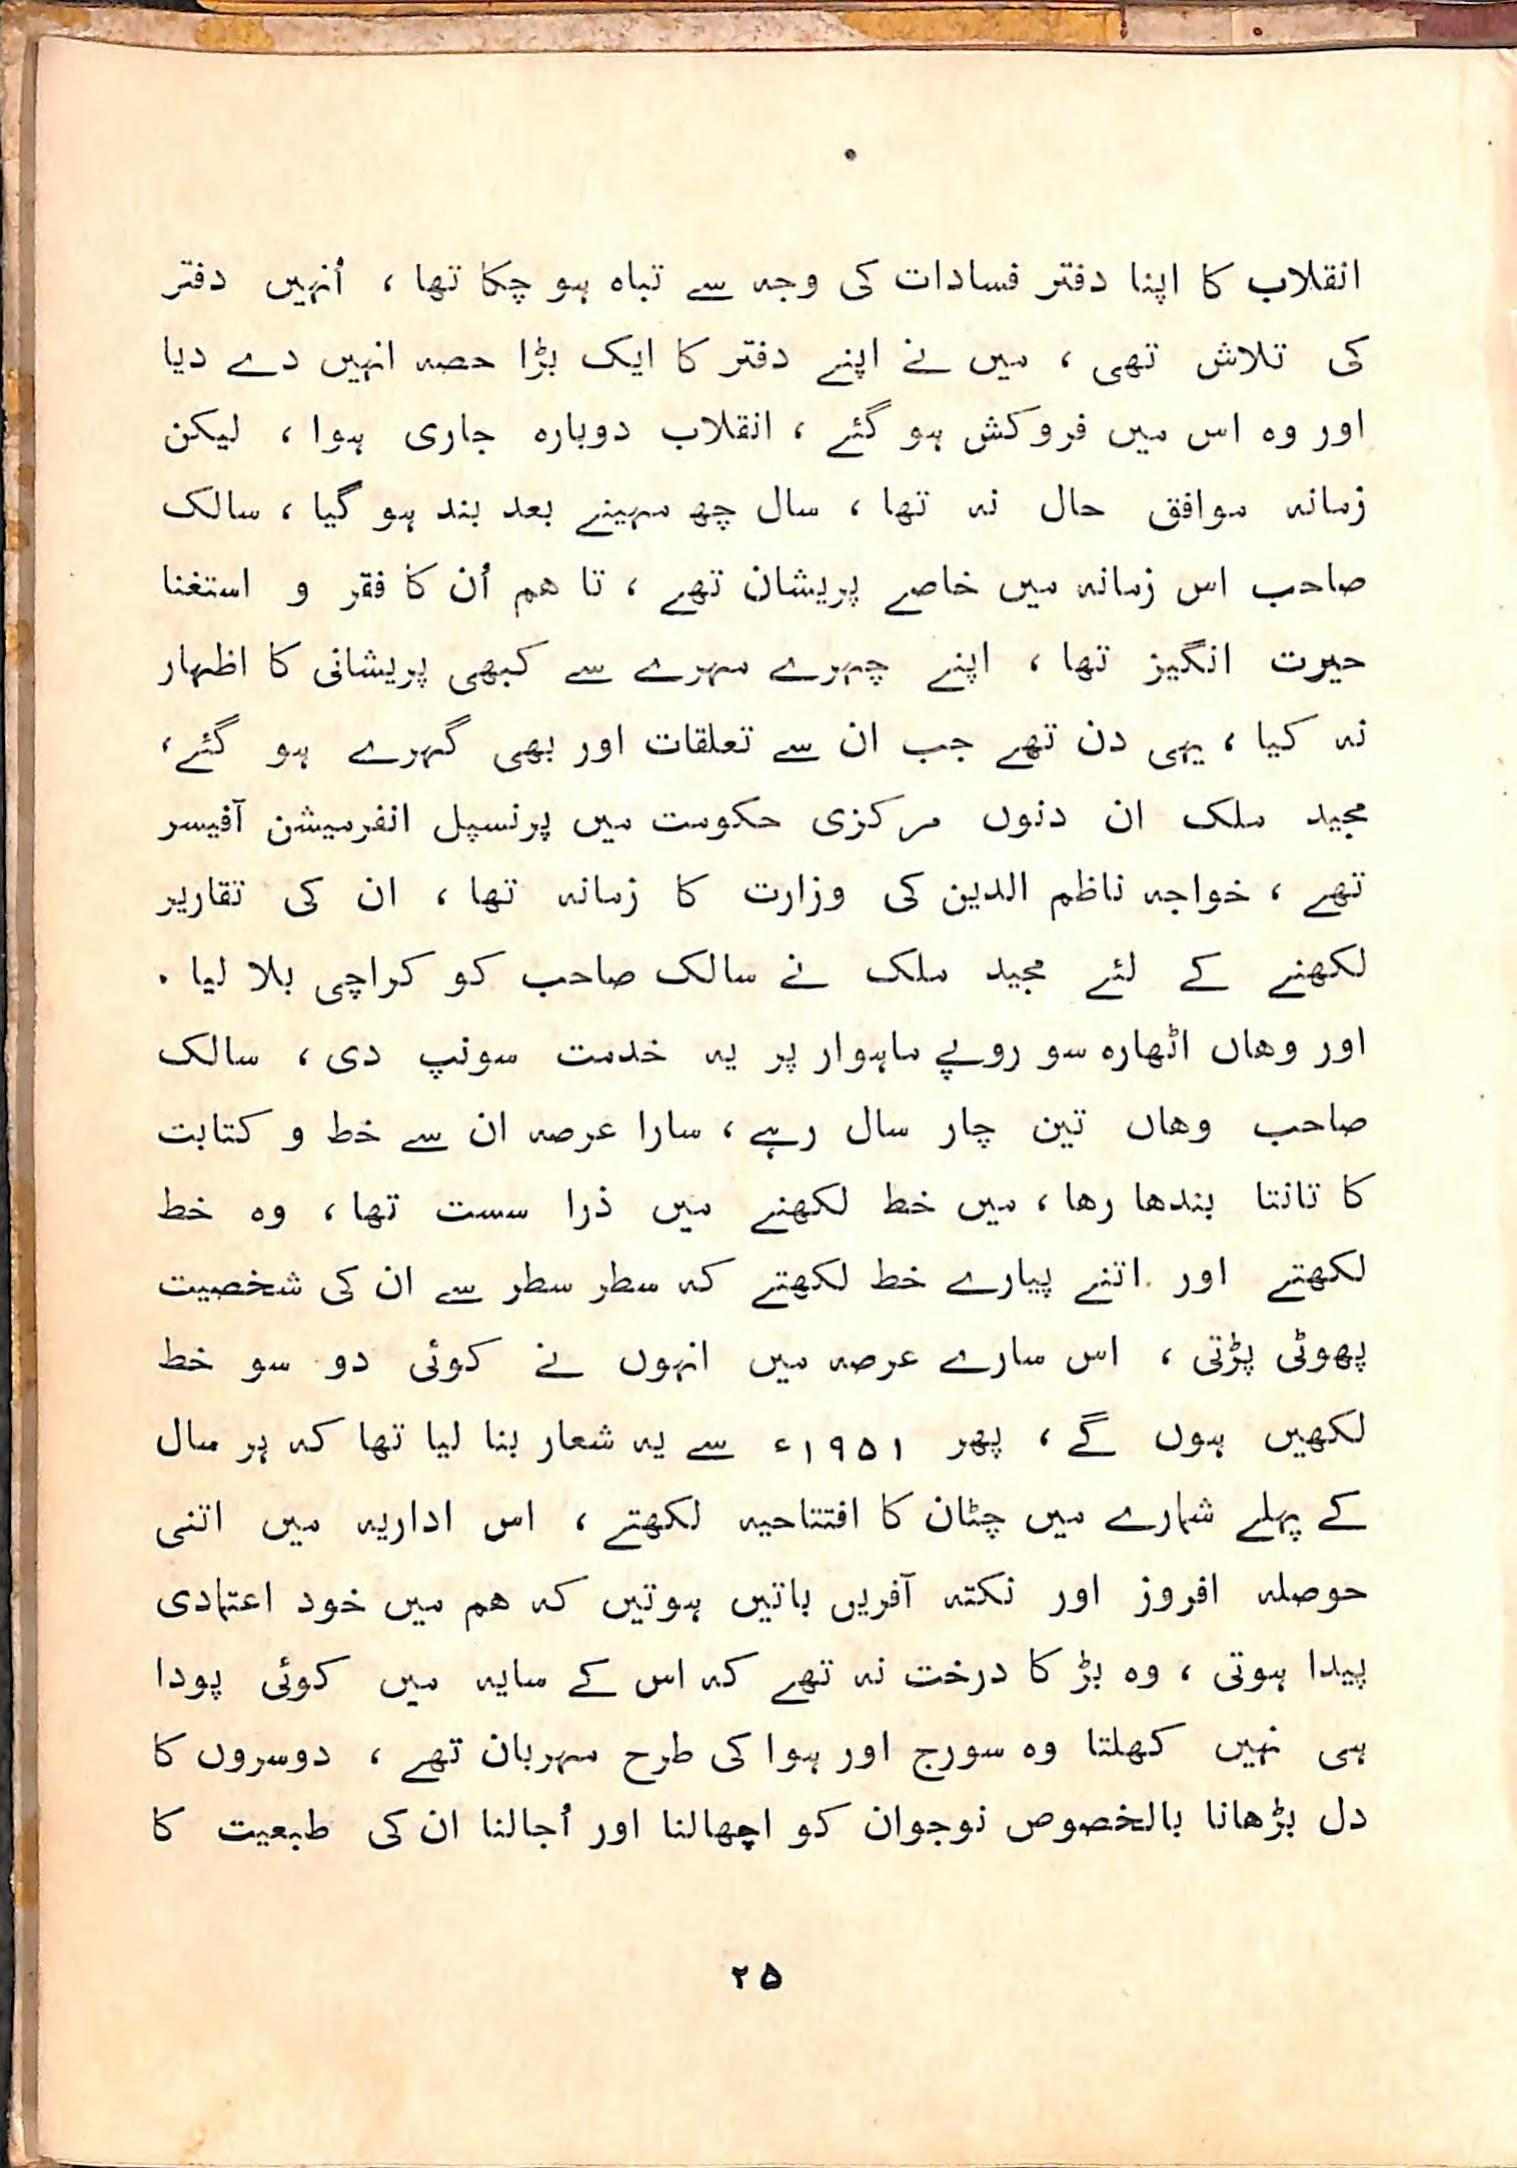 انقلاب کا اپنا دفتر فسادات کی وجہ سے تباہ ہو چکا تھا ، اُنہیں دفتر
کی تلاش تھی ، میں نے اپنے دفتر کا ایک بڑا حصہ انہیں دے دیا
اور وہ اس میں فروکش ہو گئے ، انقلاب دوبارہ جاری ہوا ، لیکن
زمانہ موافق حال نہ تھا ، سال چھ مہینے بعد بند ہو گیا ، سالک
صاحب اس زمانہ میں خاصے پریشان تھے ، تا ھم اُن کا فقر و استغنا
حیرت انگیز تھا ، اپنے چہرے مہرے سے کبھی پریشانی کا اظہار
نہ کیا ، یہی دن تھے جب ان سے تعلقات اور بھی گہرے ہو گئے ،
مجید ملک ان دنوں مرکزی حکومت میں پرنسپل انفرمیشن آفیسر
تھے ، خواجہ ناظم الدین کی وزارت کا زمانہ تھا ، ان کی تقاریر
لکھنے کے لئے مجید ملک نے سالک صاحب کو کراچی بلا لیا .
اور وھاں اٹھارہ سو روپے ماہوار پر یہ خدمت سونپ دی ، سالک
صاحب وھاں تین چار سال رہے ، سارا عرصہ ان سے خط و کتابت
کا تانتا بندھا رھا ، میں خط لکھنے میں ذرا سست تھا ، وہ خط
لکھتے اور اتنے پیارے خط لکھتے کہ سطر سطر سے ان کی شخصیت
پھوٹی پڑتی ، اس سارے عرصہ میں انہوں نے کوئی دو سو خط
لکھیں ہوں گے ، پھر ۱۹۵۱ء سے یہ شعار بنا لیا تھا کہ ہر سال
کے پہلے شمارے میں چٹان کا افتتاحیہ لکھتے ، اس اداریہ میں اتنی
حوصلہ افروز اور نکتہ آفریں باتیں ہوتیں کہ ھم میں خود اعتمادی
پیدا ہوتی ، وہ بڑ کا درخت نہ تھے کہ اس کے سایہ میں کوئی پودا
ہی نہیں کھلتا وہ سورج اور ہوا کی طرح مہربان تھے ، دوسروں کا
دل بڑھانا بالخصوص نوجوان کو اچھالنا اور اُجالنا ان کی طبعیت کا
۲۵